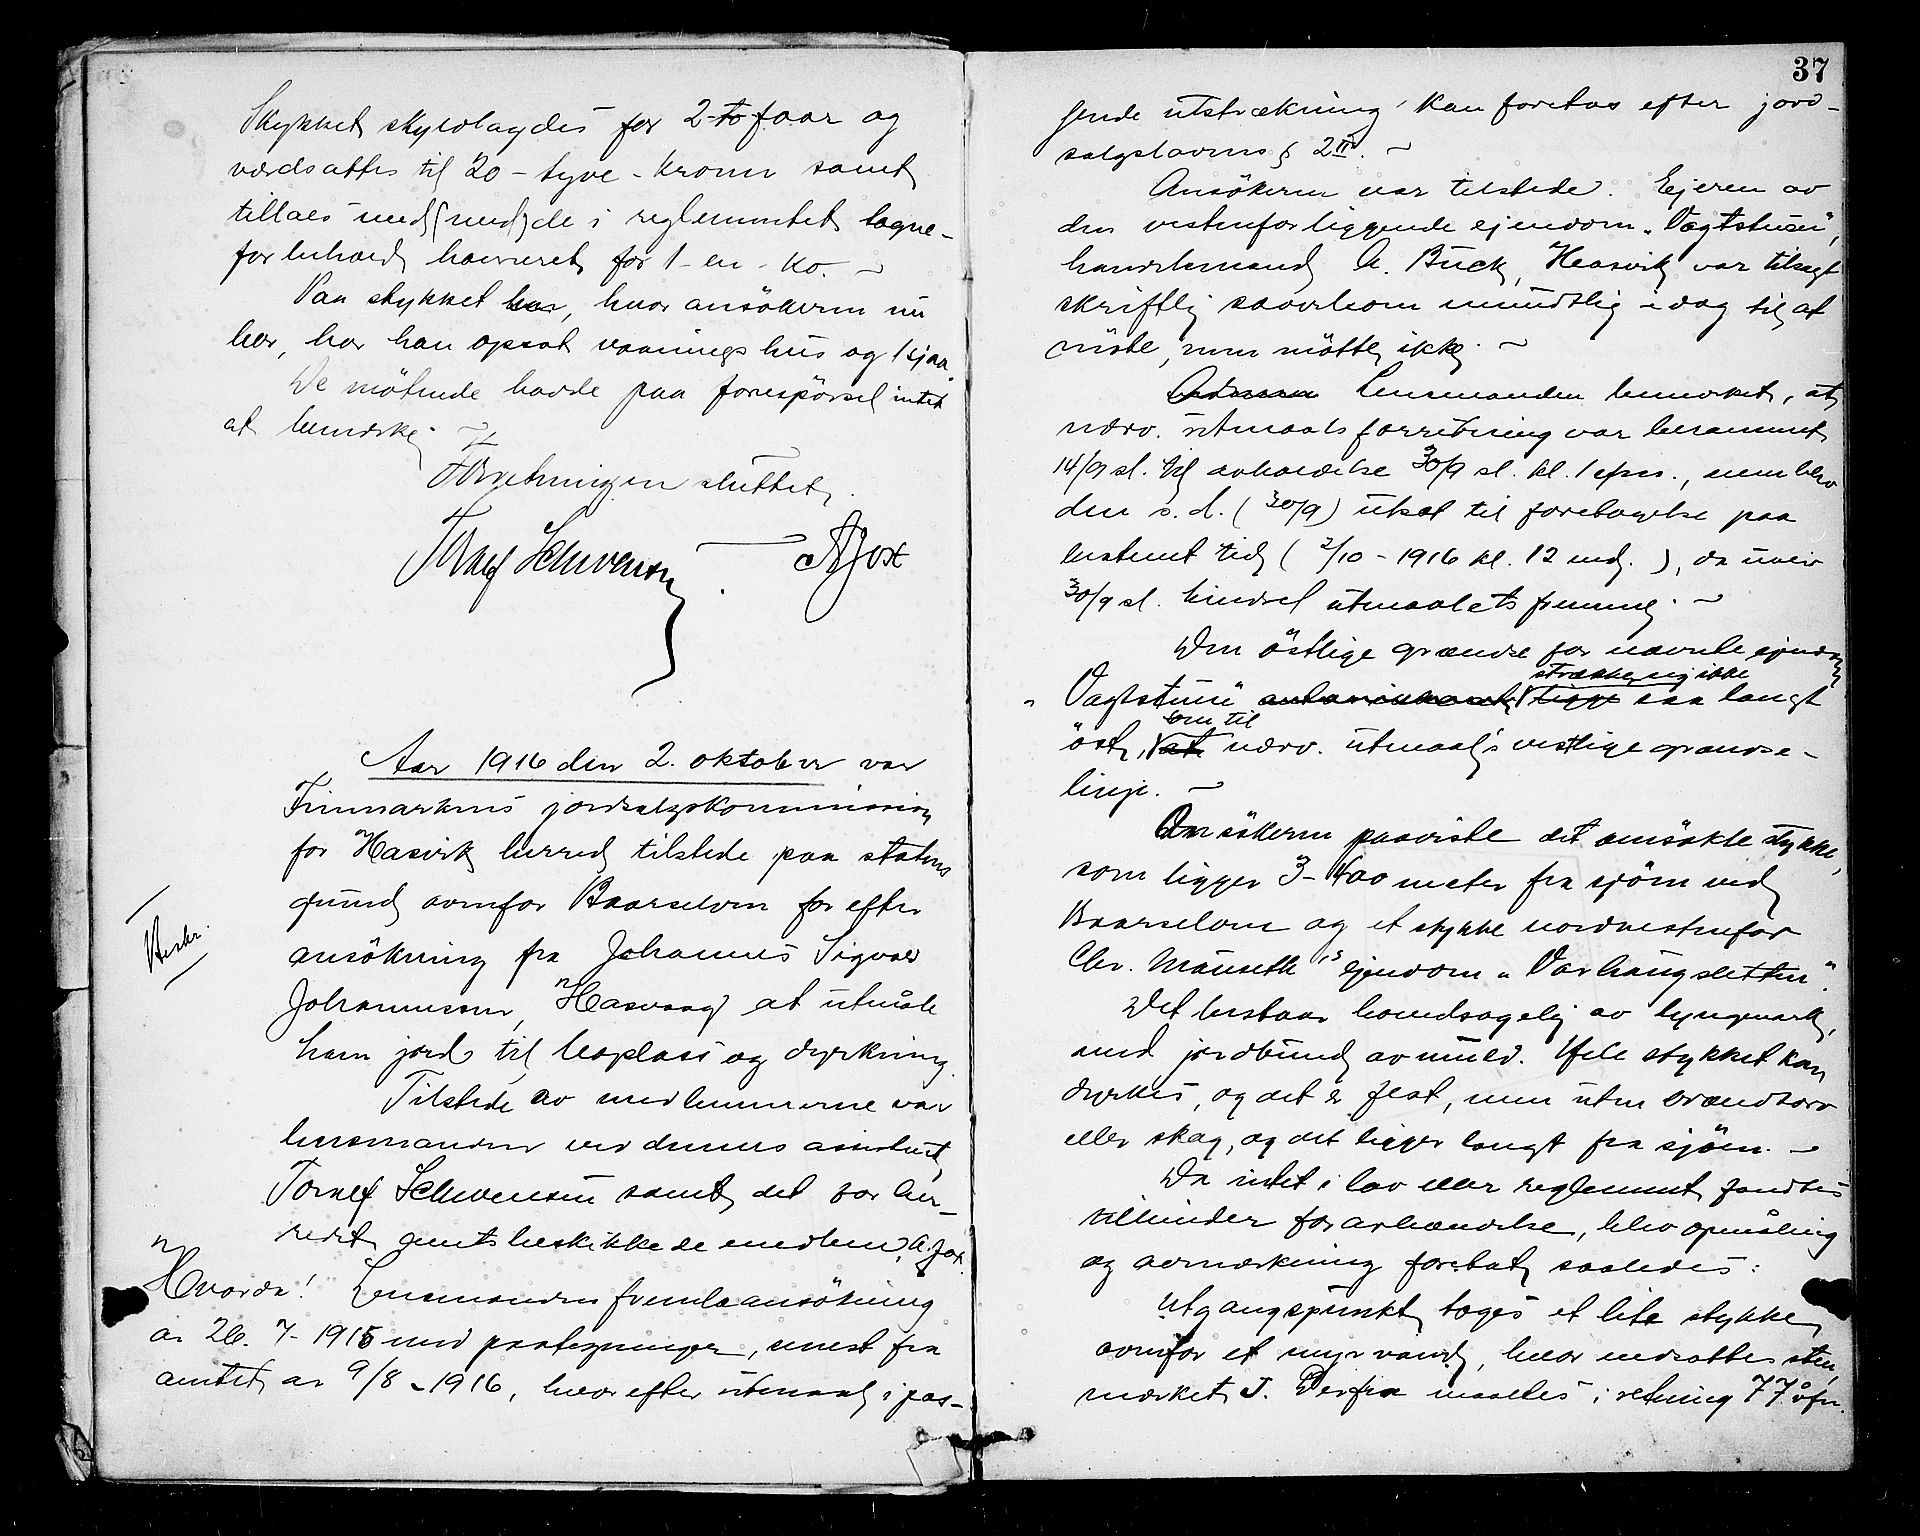 Stykket skyldlagdes for 2-to faar og
værdsattes til 20 - tyve - kroner samt
tillaes med de i reglementet tagne
forbehold havneret for 1 - en - ko. -
Paa stykket har, hvor ansökeren nu
bor, har han opsat vaaningshus og 1 sjaa
De mötende hadde paa forespörsel intet
at bemærke. -
Forretningen sluttet.
Toralf Schwensen. A Fox
Aar 1916 den 2. oktober var
Finmarkens jordsalgskommission
for Hasvik herred tilstede paa statens
grund ovenfor Baarselven for efter
ansökning fra Johannes Sigvald
Beskr.
Johannessen, Hasvaag at utmåle
ham jord til boplass og dyrkning.
Tilstede av medlemmerne var
lensmanden ved dennes assistent
Toralf Schwensen samt det for her-
redet amtsbeskikkede medlem, A. Fox.
Hvorda! Lensmanden fremla ansökning
av 26. 7 - 1915 med paategninger, senest fra
amtet av 9/8 - 1916, hvorefter utmaal i pas-
37
sende utstrækning kan foretas efter jord-
salgslovens § 2 II. -
Ansökeren var tilstede. Ejeren av
den vestenfor liggende ejendom "Vagtstuen",
handelsmand A. Buck, Hasvik var tilsagt
skriftlig saavelsom mundtlig i dag til at
möte, men mötte ikke. -
Lensmanden bemerket, at
nærv. utmaalsforretning var berammet
14/9 sl. til avholdelse 30/9 sl. kl. 1 efm., men blev
den s.d. (30/9) utsat til foretagelse paa
bestemt tid (2/10 - 1916 kl. 12 md.), da uveir
30/9 sl. hindret utmaalets fremme. -
Den östlige grændse for nævnte ejendom
strækker sig ikke
"Vagtstuen" ligger saa langt
som til
öst, at nærv. utmaal's vestlige grændse-
linje. -
Ansökeren paaviste det ansökte stykke,
som ligger 3-400 meter fra sjöen ved
Baarselven og et stykke nordvestenfor
Chr. Mauseth's ejendom "Varhaugsletten".
Det bestaar hovedsagelig av lyngmark,
med jordbund av muld. Hele stykket kan
dyrkes, og det er fest, men uten brændtorv
eller skog, og det ligger langt fra sjöen. -
Da intet i lov eller reglement fandtes
tilhinder for avhændelse, blev opmåling
og avmærkning foretat saaledes:
Utgangspunkt toges et lite stykke
ovenfor et myrvand, hvor nedsattes sten,
mærket I. Derfra maaltes i retning 77° öfn.